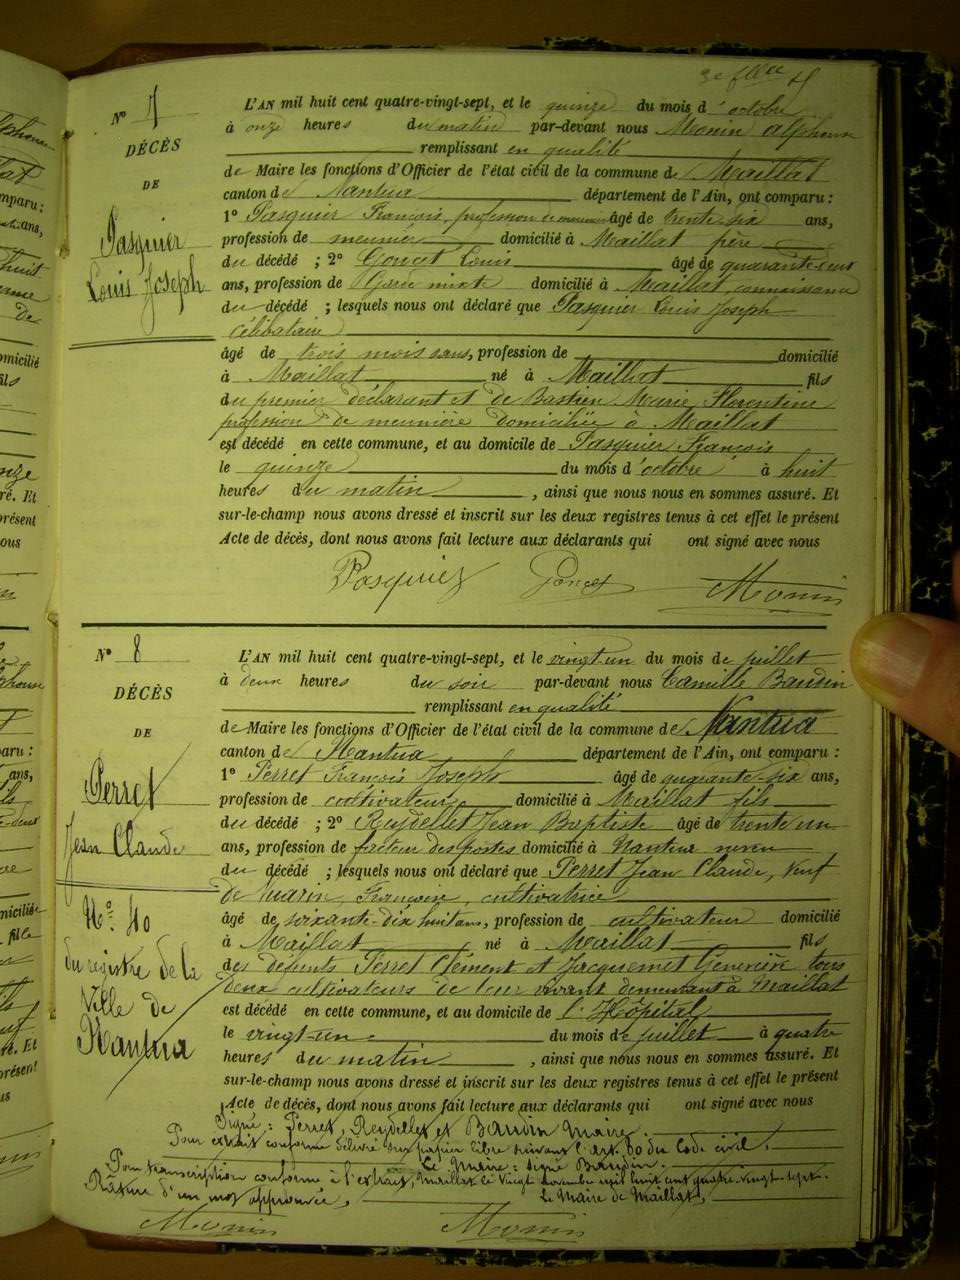 Nº 7
DÉCÈS
DE
Pasquier
Louis Joseph
L'AN mil huit cent quatre-vingt-sept, et le quinze du mois d'octobre
à onze heures du matin par-devant nous Monin Alphonse
remplissant en qualité
de Maire les fonctions d'Officier de l'état civil de la commune de Maillat
canton de Nantua département de l'Ain, ont comparu :
1º Pasquier François, profession de meunier âgé de trente-six ans,
profession de meunier domicilié à Maillat père
du décédé ; 2º Goncet Louis âgé de quarante-
ans, profession de domicilié à Maillat, connaissance
du décédé ; lesquels nous ont déclaré que Pasquier Louis Joseph
célibataire
âgé de trois mois sans, profession de domicilié
à Maillat né à Maillat fils
du premier déclarant et de Bastien Marie Florentine
profession de meunière domiciliée à Maillat
est décédé en cette commune, et au domicile de Pasquier François
le quinze du mois d'octobre à huit
heures du matin , ainsi que nous nous en sommes assuré. Et
sur-le-champ nous avons dressé et inscrit sur les deux registres tenus à cet effet le présent
Acte de décès, dont nous avons fait lecture aux déclarants qui ont signé avec nous
Pasquier Goncet Monin
Nº 8
DÉCÈS
DE
Perret
Jean Claude
Nº 40
du registre de la
Ville de
Nantua
L'AN mil huit cent quatre-vingt-sept, et le vingt un du mois de juillet
à deux heures du soir par-devant nous Camille Baudin
remplissant en qualité
de Maire les fonctions d'Officier de l'état civil de la commune de Nantua
canton de Nantua département de l'Ain, ont comparu :
1º Perret François Joseph âgé de quarante-six ans,
profession de cultivateur domicilié à Maillat fils
du décédé ; 2º Reydellet Jean Baptiste âgé de trente un
ans, profession de facteur des postes domicilié à Nantua neveu
du décédé ; lesquels nous ont déclaré que Perret Jean Claude, veuf
de Marin, Françoise, cultivatrice
âgé de soixante-dix huit ans, profession de cultivateur domicilié
à Maillat né à Maillat fils
des défunts Perret Clément et Jacquemet Geneviève tous
deux cultivateurs de leur vivant demeurant à Maillat
est décédé en cette commune, et au domicile de l'Hôpital
le vingt-un du mois de juillet à quatre
heures du matin , ainsi que nous nous en sommes assuré. Et
sur-le-champ nous avons dressé et inscrit sur les deux registres tenus à cet effet le présent
Acte de décès, dont nous avons fait lecture aux déclarants qui ont signé avec nous
Signé : Perret, Reydellet et Baudin Maire.
Pour extrait conforme délivré sur papier libre suivant l'art. 80 du Code civil.
Le Maire : signé Baudin.
Pour transcription conforme à l'extrait, Maillat le vingt novembre mil huit cent quatre-vingt-sept.
Rature d'un mot approuvée, Le Maire de Maillat,
Monin Monin